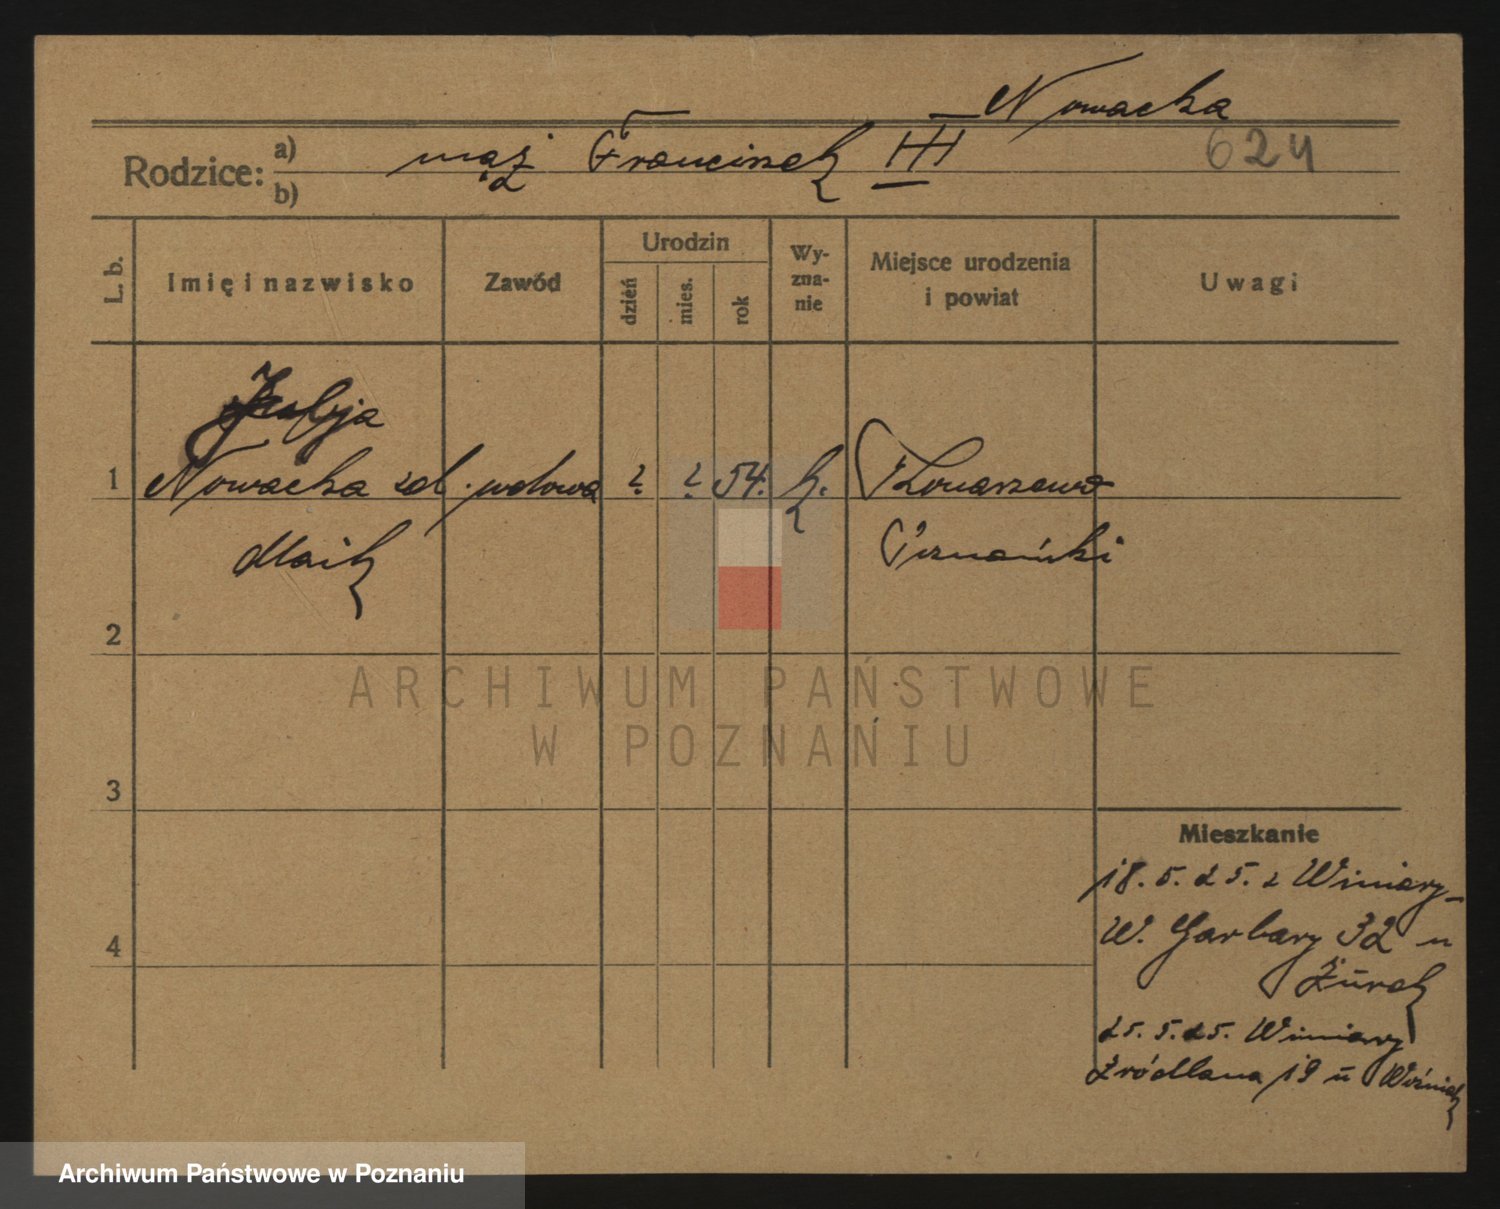 Nowacka
624
Rodzice: a) mąż Franciszek III
b)
L. b. Imię i nazwisko Zawód Urodzin dzień mies. rok Wy-zna-nie Miejsce urodzenia i powiat Uwagi
1 Nowacka wdowa ? ? 54. k.
Poznański
2
3
4
Mieszkanie
18.5.25. z Winiary
W. Garbary 32 u
Żurek
25.5.25. Winiary
Źródlana 19 u Woźniak
ARCHIWUM PAŃSTWOWE
W POZNANIU
Archiwum Państwowe w Poznaniu